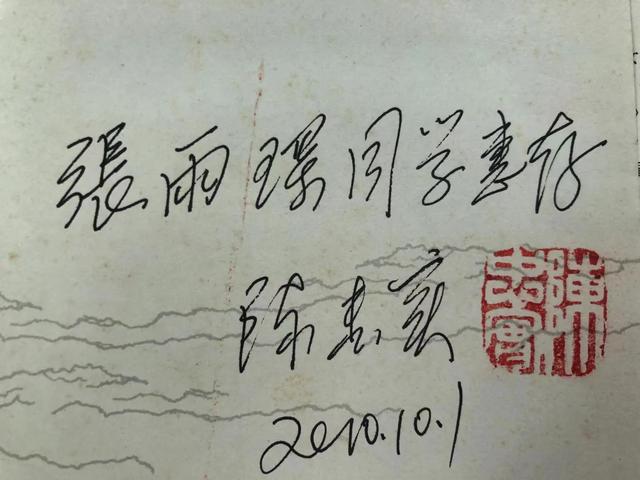 張雨璟同学惠存
陈忠实
陳忠實
2010.10.1